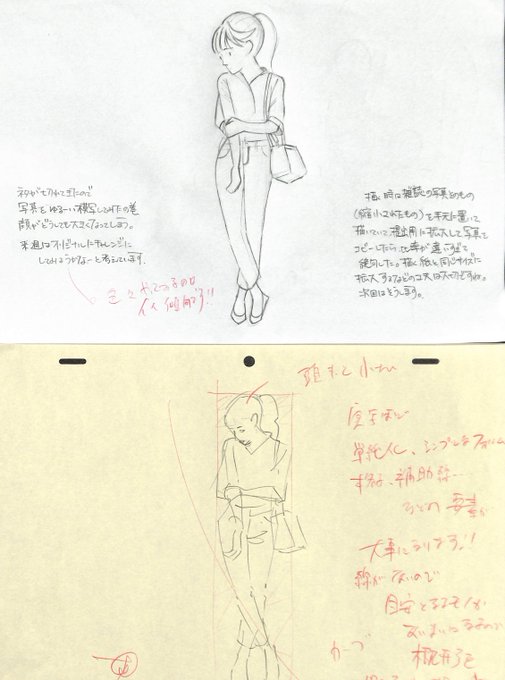 ネタが切れてきたので
写真をゆるーい模写してみたの巻
顔がどうしても大きくなってしまう。
来週はオリジナルにチャレンジに
してみようかなーと考えています。
色々やってみるのは
イイ傾向です!!
描く時は雑誌の写真そのもの
(縮小されたもの)を手元に置いて
描いていて提出用に拡大して写真を
コピーしたら比率が違いすぎて
絶句した。描く紙と同じサイズに
拡大するなどの工夫は大切ですね。
次回はそうします。
頭もっと小さい
単純化、シンプルなフォルム
補助線…
などの要素が
大事になります!!
線がないので
目安となるモノが
あいまいになるので
カーブ